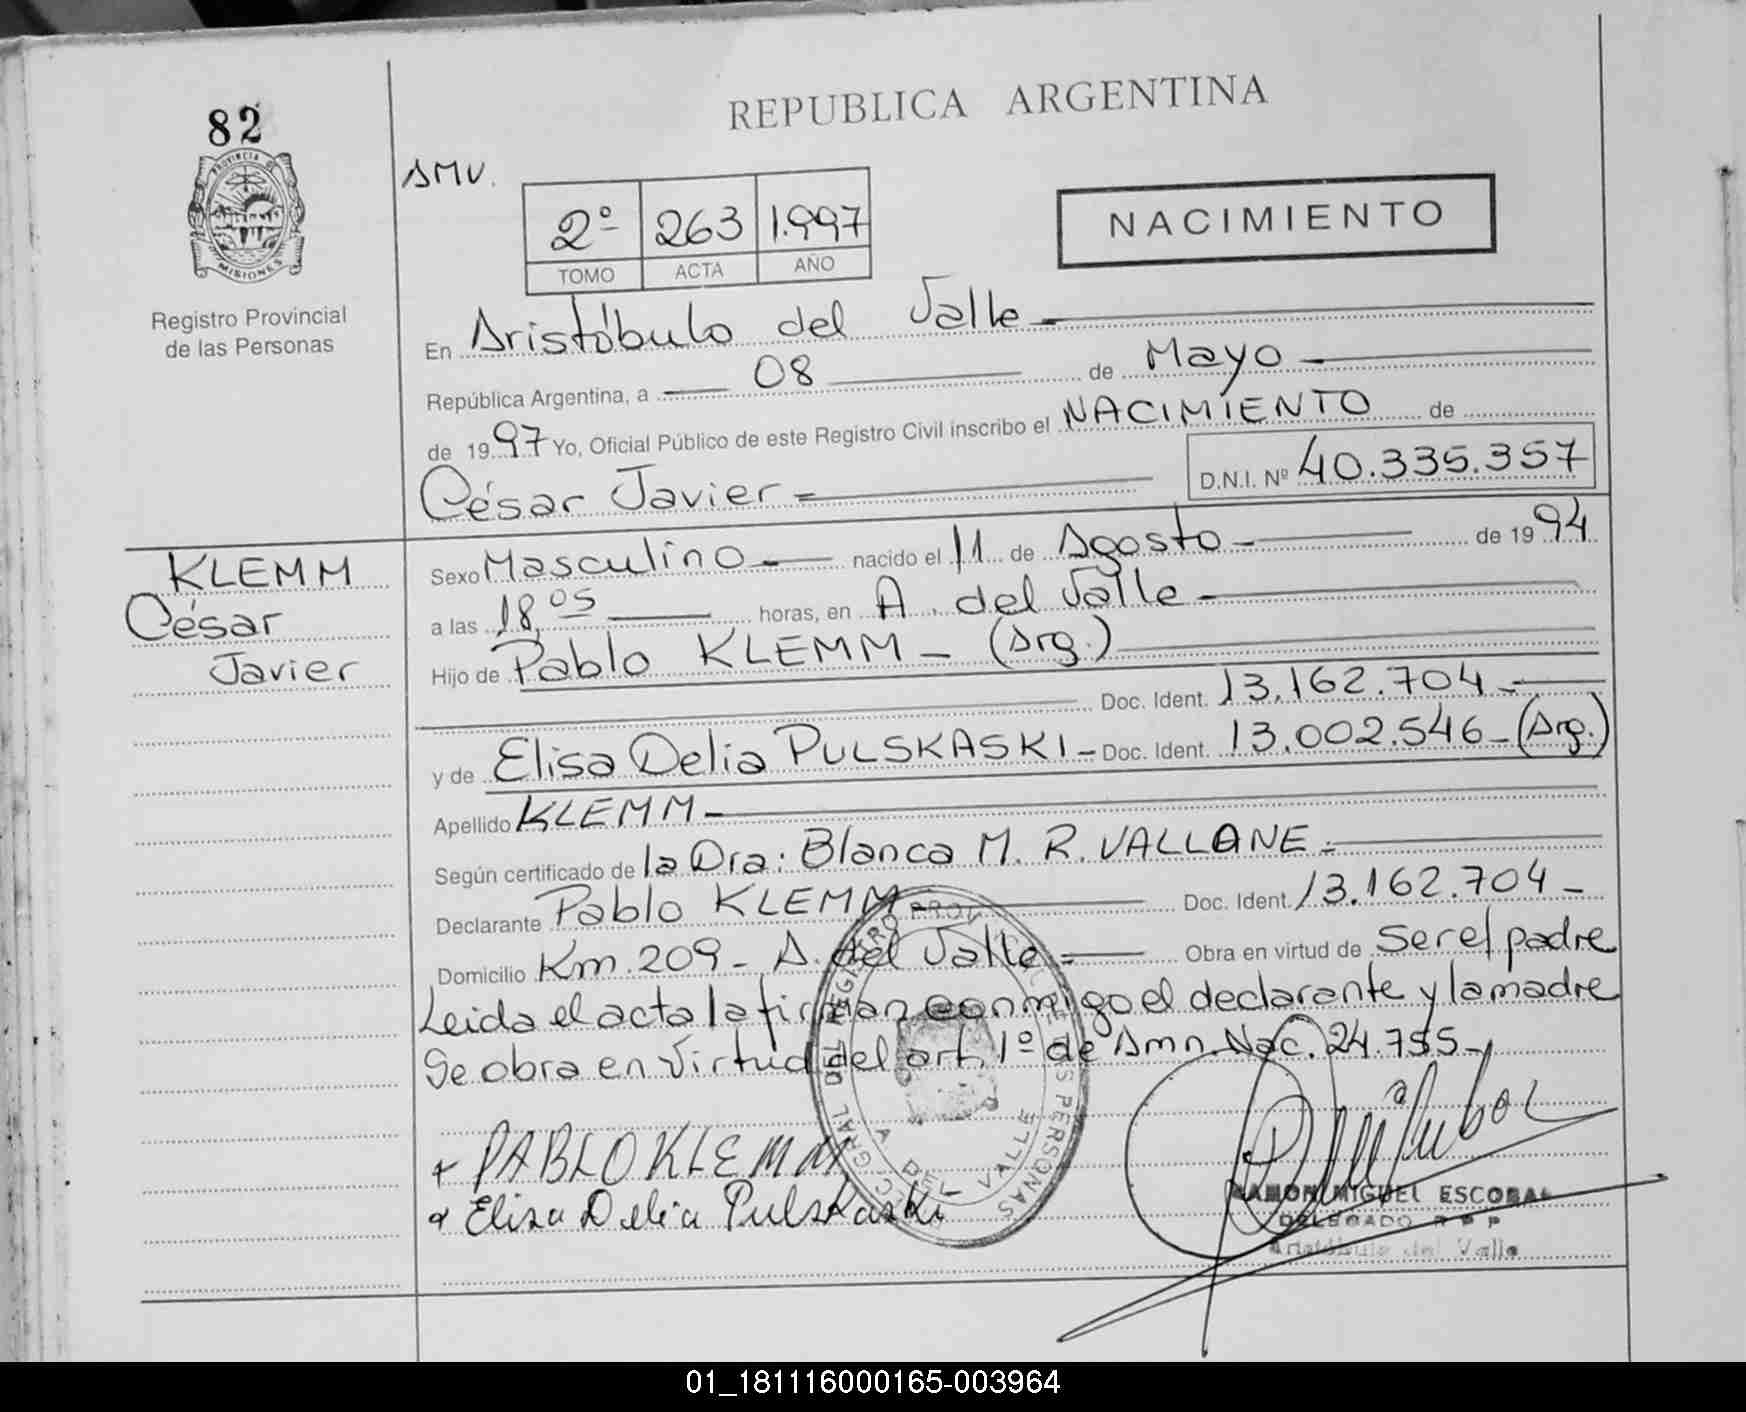 82
PROVINCIA DE
MISIONES
Registro Provincial
de las Personas
REPUBLICA ARGENTINA
AMV.
2º 263 1.997
TOMO ACTA AÑO
NACIMIENTO
En Aristóbulo del Valle
República Argentina, a 08 de Mayo
de 1997 Yo, Oficial Público de este Registro Civil inscribo el NACIMIENTO de
César Javier D.N.I. Nº 40.335.357
KLEMM
César
Javier
Sexo Masculino nacido el 11 de Agosto de 1994
a las 18,05 horas, en A. del Valle
Hijo de Pablo KLEMM - (Arg.)
Doc. Ident. 13.162.704 -
y de Elisa Delia PULSKASKI - Doc. Ident. 13.002.546 - (Arg.)
Apellido KLEMM -
Según certificado de la Dra: Blanca M. R. VALLANE -
Declarante Pablo KLEMM - Doc. Ident. 13.162.704 -
Domicilio Km. 209 - A. del Valle Obra en virtud de ser el padre
Leida el acta la firman conmigo el declarante y la madre
Se obra en virtud del art. 1º de Amn. Nac. 24.755 -
PABLO KLEMM
Elisa Delia Pulskaski
RAMON MIGUEL ESCOBAR
DELEGADO R P P
Aristóbulo del Valle
01_181116000165-003964